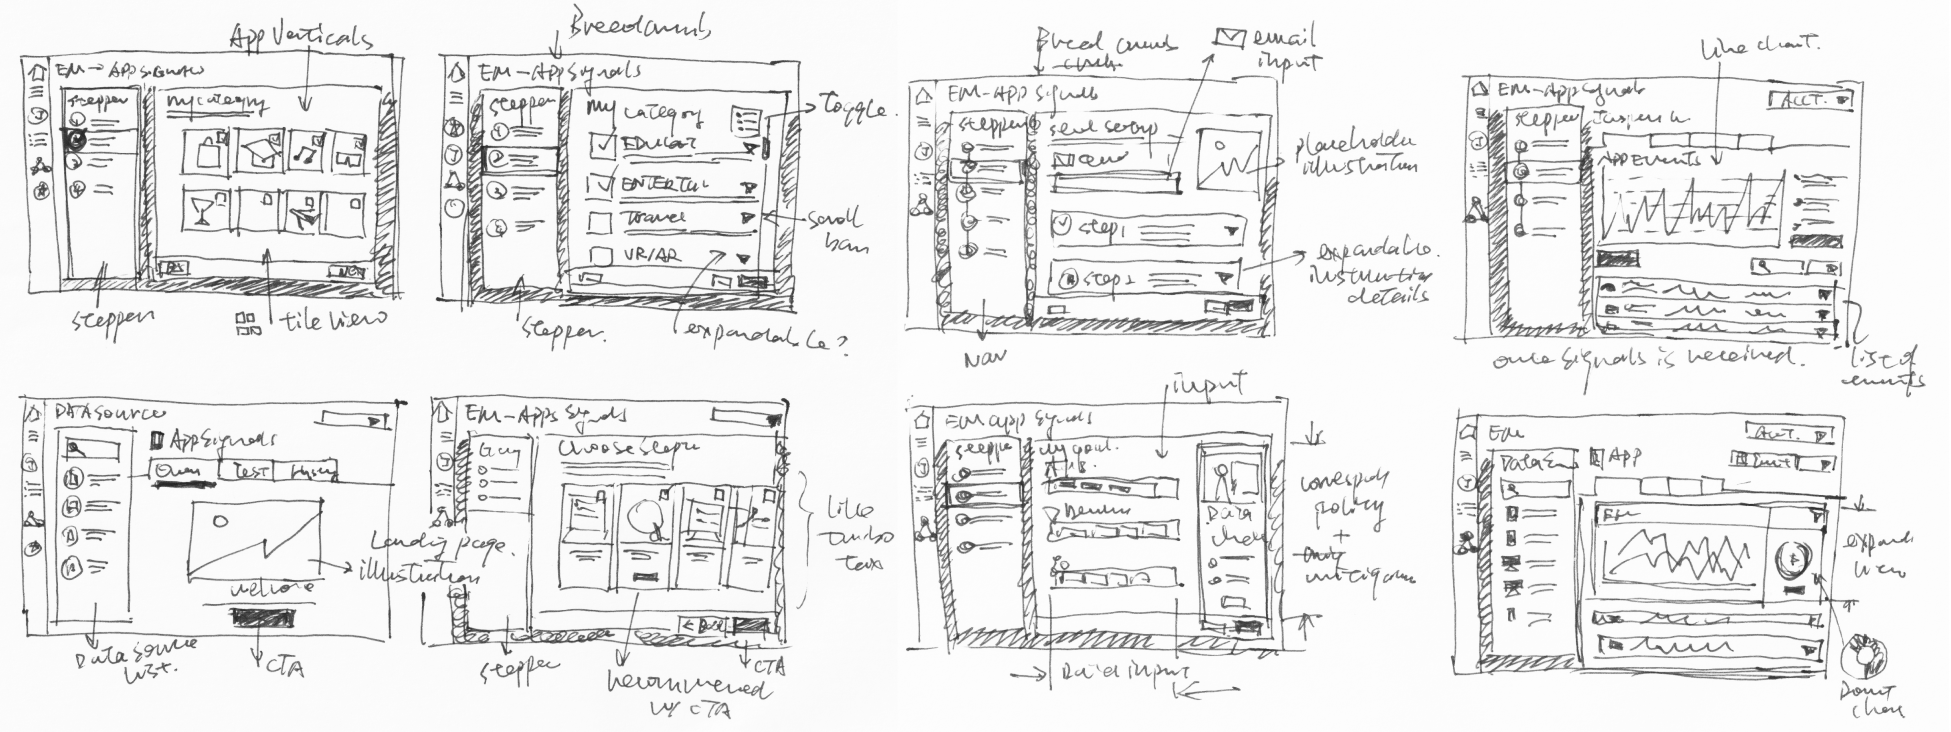 App Verticals
EM → App signals
stepper
my category
Back
Next
stepper
tile view
Breadcrumb
EM-AppSignals
stepper
My category
EDUCAT
ENTERTAI
Travel
VR/AR
Toggle
scroll bar
stepper.
expandable?
Breadcrumb
email
input
EM-App Signals
stepper
Send setup
placeholder
illustration
step1
step 2
expandable.
instruction
details
Nav
Line chart.
EM-App Signals
ACCT.
stepper
APP EVENTS
once signals is received.
list of
events
DATA SOURCE
App Signals
Over
Test
welcome
Landing page.
illustration
Data source
list.
CTA
EM-Apps Signals
Choose
Like
turbo
tax
← Back
stepper
recommended
w/ CTA
CTA
input
EM app Signals
stepper
my goal.
Data
policy
+
Data input
EM
ACCT.
APP
expand
view
Donut
chart